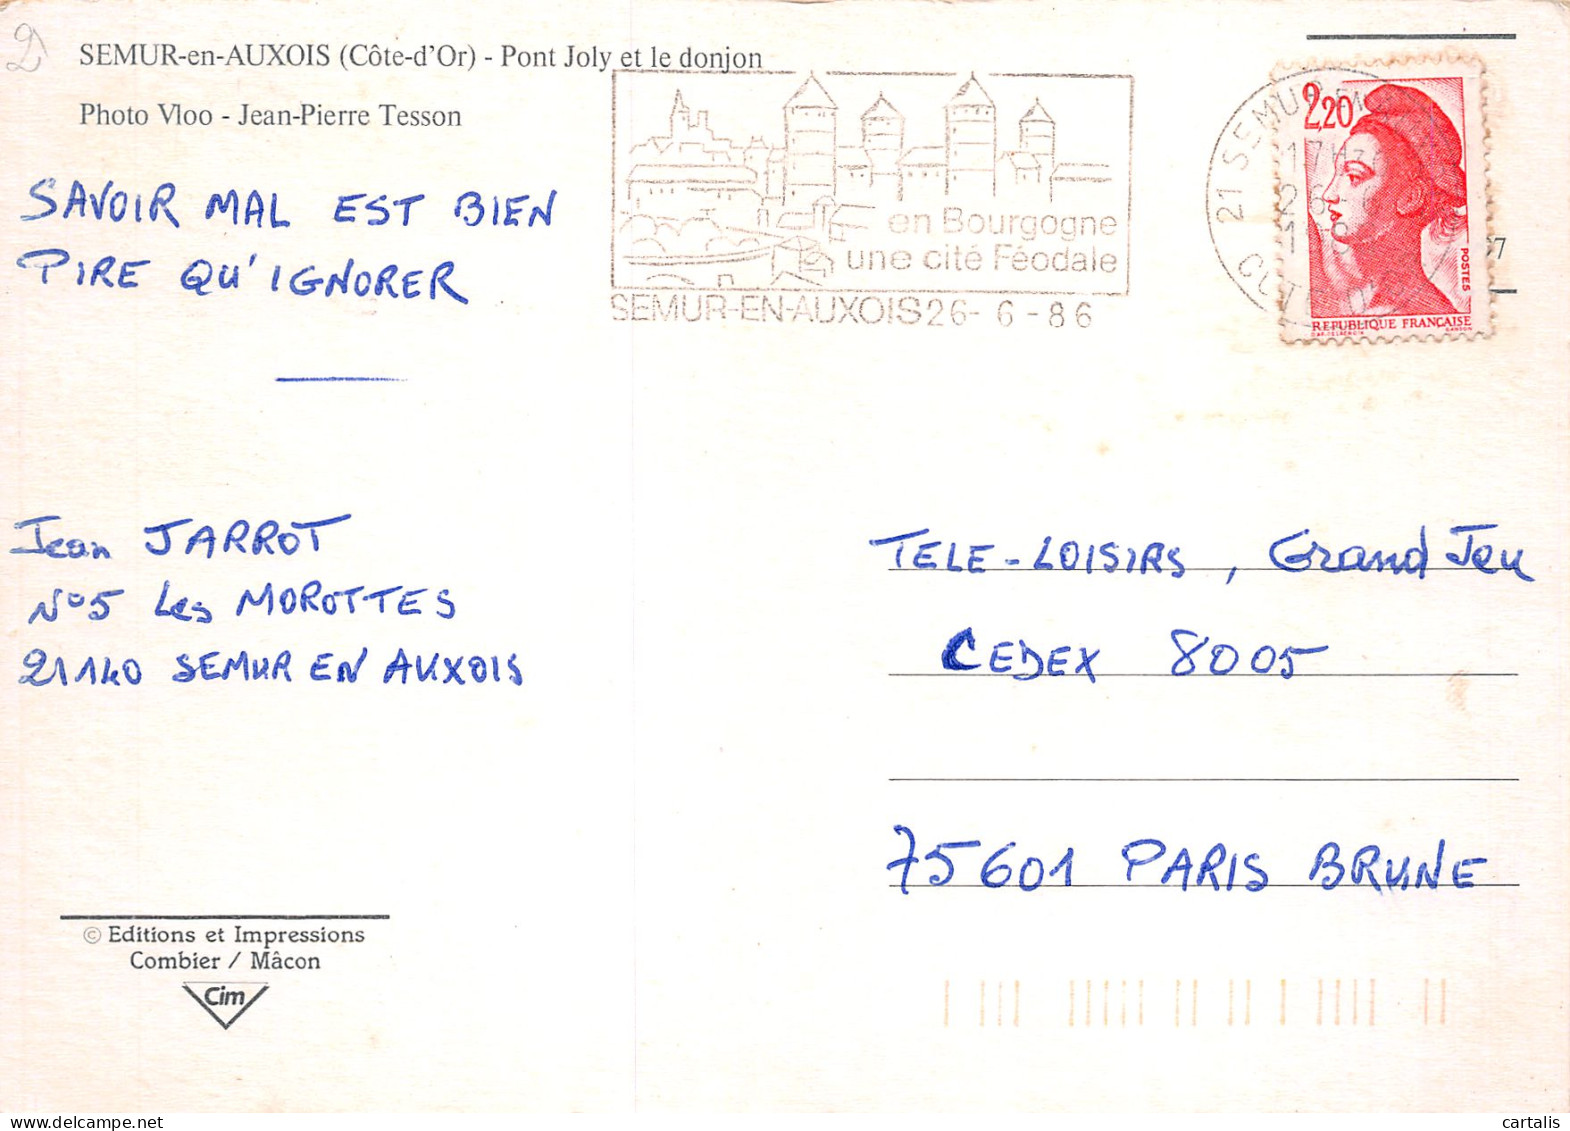 2
SEMUR-en-AUXOIS (Côte-d'Or) - Pont Joly et le donjon
Photo Vloo - Jean-Pierre Tesson
SAVOIR MAL EST BIEN
PIRE QU'IGNORER
en Bourgogne
une cité Féodale
SEMUR-EN-AUXOIS 26-6-86
21 SEMUR-EN
2,20
POSTES
REPUBLIQUE FRANÇAISE
Jean JARROT
N°5 Les MOROTTES
21140 SEMUR EN AUXOIS
TELE-LOISIRS, Grand Jeu
CEDEX 8005
75601 PARIS BRUNE
© Editions et Impressions
Combier / Mâcon
Cim
cartalis
delcampe.net